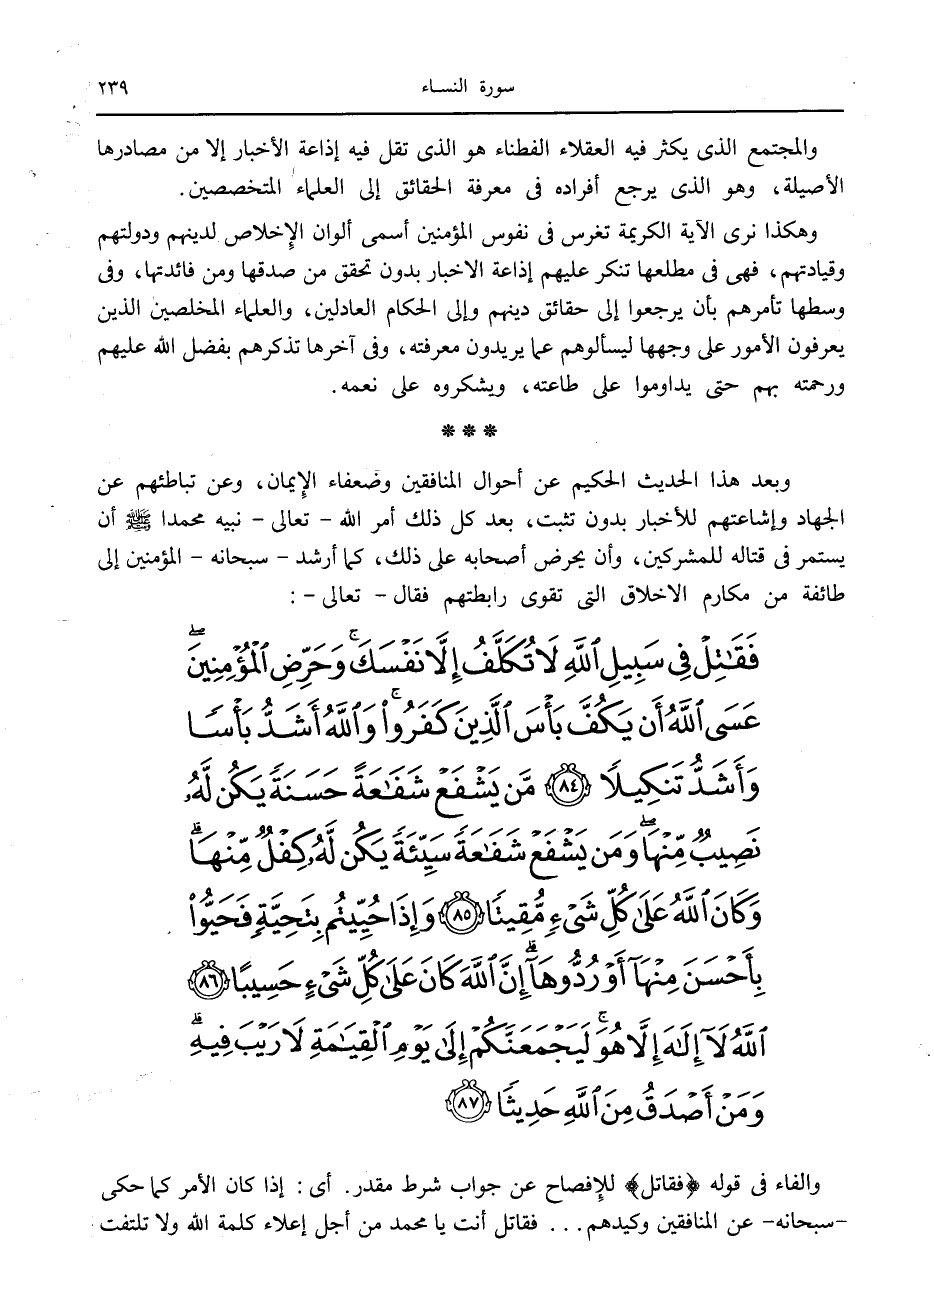 سورة النساء ٢٣٩
والمجتمع الذى يكثر فيه العقلاء الفطناء هو الذى تقل فيه إذاعة الأخبار إلا من مصادرها
الأصيلة، وهو الذى يرجع أفراده فى معرفة الحقائق إلى العلماء المتخصصين.
وهكذا نرى الآية الكريمة تغرس فى نفوس المؤمنين أسمى ألوان الإخلاص لدينهم ودولتهم
وقيادتهم، فهى فى مطلعها تنكر عليهم إذاعة الاخبار بدون تحقق من صدقها ومن فائدتها، وفى
وسطها تأمرهم بأن يرجعوا إلى حقائق دينهم وإلى الحكام العادلين، والعلماء المخلصين الذين
يعرفون الأمور على وجهها ليسألوهم عما يريدون معرفته، وفى آخرها تذكرهم بفضل الله عليهم
ورحمته بهم حتى يداوموا على طاعته، ويشكروه على نعمه.
***
وبعد هذا الحديث الحكيم عن أحوال المنافقين وضعفاء الإيمان، وعن تباطئهم عن
الجهاد وإشاعتهم للأخبار بدون تثبت، بعد كل ذلك أمر الله - تعالى - نبيه محمدا ﷺ أن
يستمر فى قتاله للمشركين، وأن يحرض أصحابه على ذلك، كما أرشد - سبحانه - المؤمنين إلى
طائفة من مكارم الاخلاق التى تقوى رابطتهم فقال - تعالى - :
فَقَٰتِلْ فِى سَبِيلِ ٱللَّهِ لَا تُكَلَّفُ إِلَّا نَفْسَكَ ۚ وَحَرِّضِ ٱلْمُؤْمِنِينَ ۖ
عَسَى ٱللَّهُ أَن يَكُفَّ بَأْسَ ٱلَّذِينَ كَفَرُوا۟ ۚ وَٱللَّهُ أَشَدُّ بَأْسًا
وَأَشَدُّ تَنكِيلًا ٨٤ مَّن يَشْفَعْ شَفَٰعَةً حَسَنَةً يَكُن لَّهُۥ
نَصِيبٌ مِّنْهَا ۖ وَمَن يَشْفَعْ شَفَٰعَةً سَيِّئَةً يَكُن لَّهُۥ كِفْلٌ مِّنْهَا ۗ
وَكَانَ ٱللَّهُ عَلَىٰ كُلِّ شَىْءٍ مُّقِيتًا ٨٥ وَإِذَا حُيِّيتُم بِتَحِيَّةٍ فَحَيُّوا۟
بِأَحْسَنَ مِنْهَآ أَوْ رُدُّوهَآ ۗ إِنَّ ٱللَّهَ كَانَ عَلَىٰ كُلِّ شَىْءٍ حَسِيبًا ٨٦
ٱللَّهُ لَآ إِلَٰهَ إِلَّا هُوَ ۚ لَيَجْمَعَنَّكُمْ إِلَىٰ يَوْمِ ٱلْقِيَٰمَةِ لَا رَيْبَ فِيهِ ۗ
وَمَنْ أَصْدَقُ مِنَ ٱللَّهِ حَدِيثًا ٨٧
والفاء فى قوله ﴿فقاتل﴾ للإفصاح عن جواب شرط مقدر. أى : إذا كان الأمر كما حكى
-سبحانه- عن المنافقين وكيدهم... فقاتل أنت يا محمد من أجل إعلاء كلمة الله ولا تلتفت